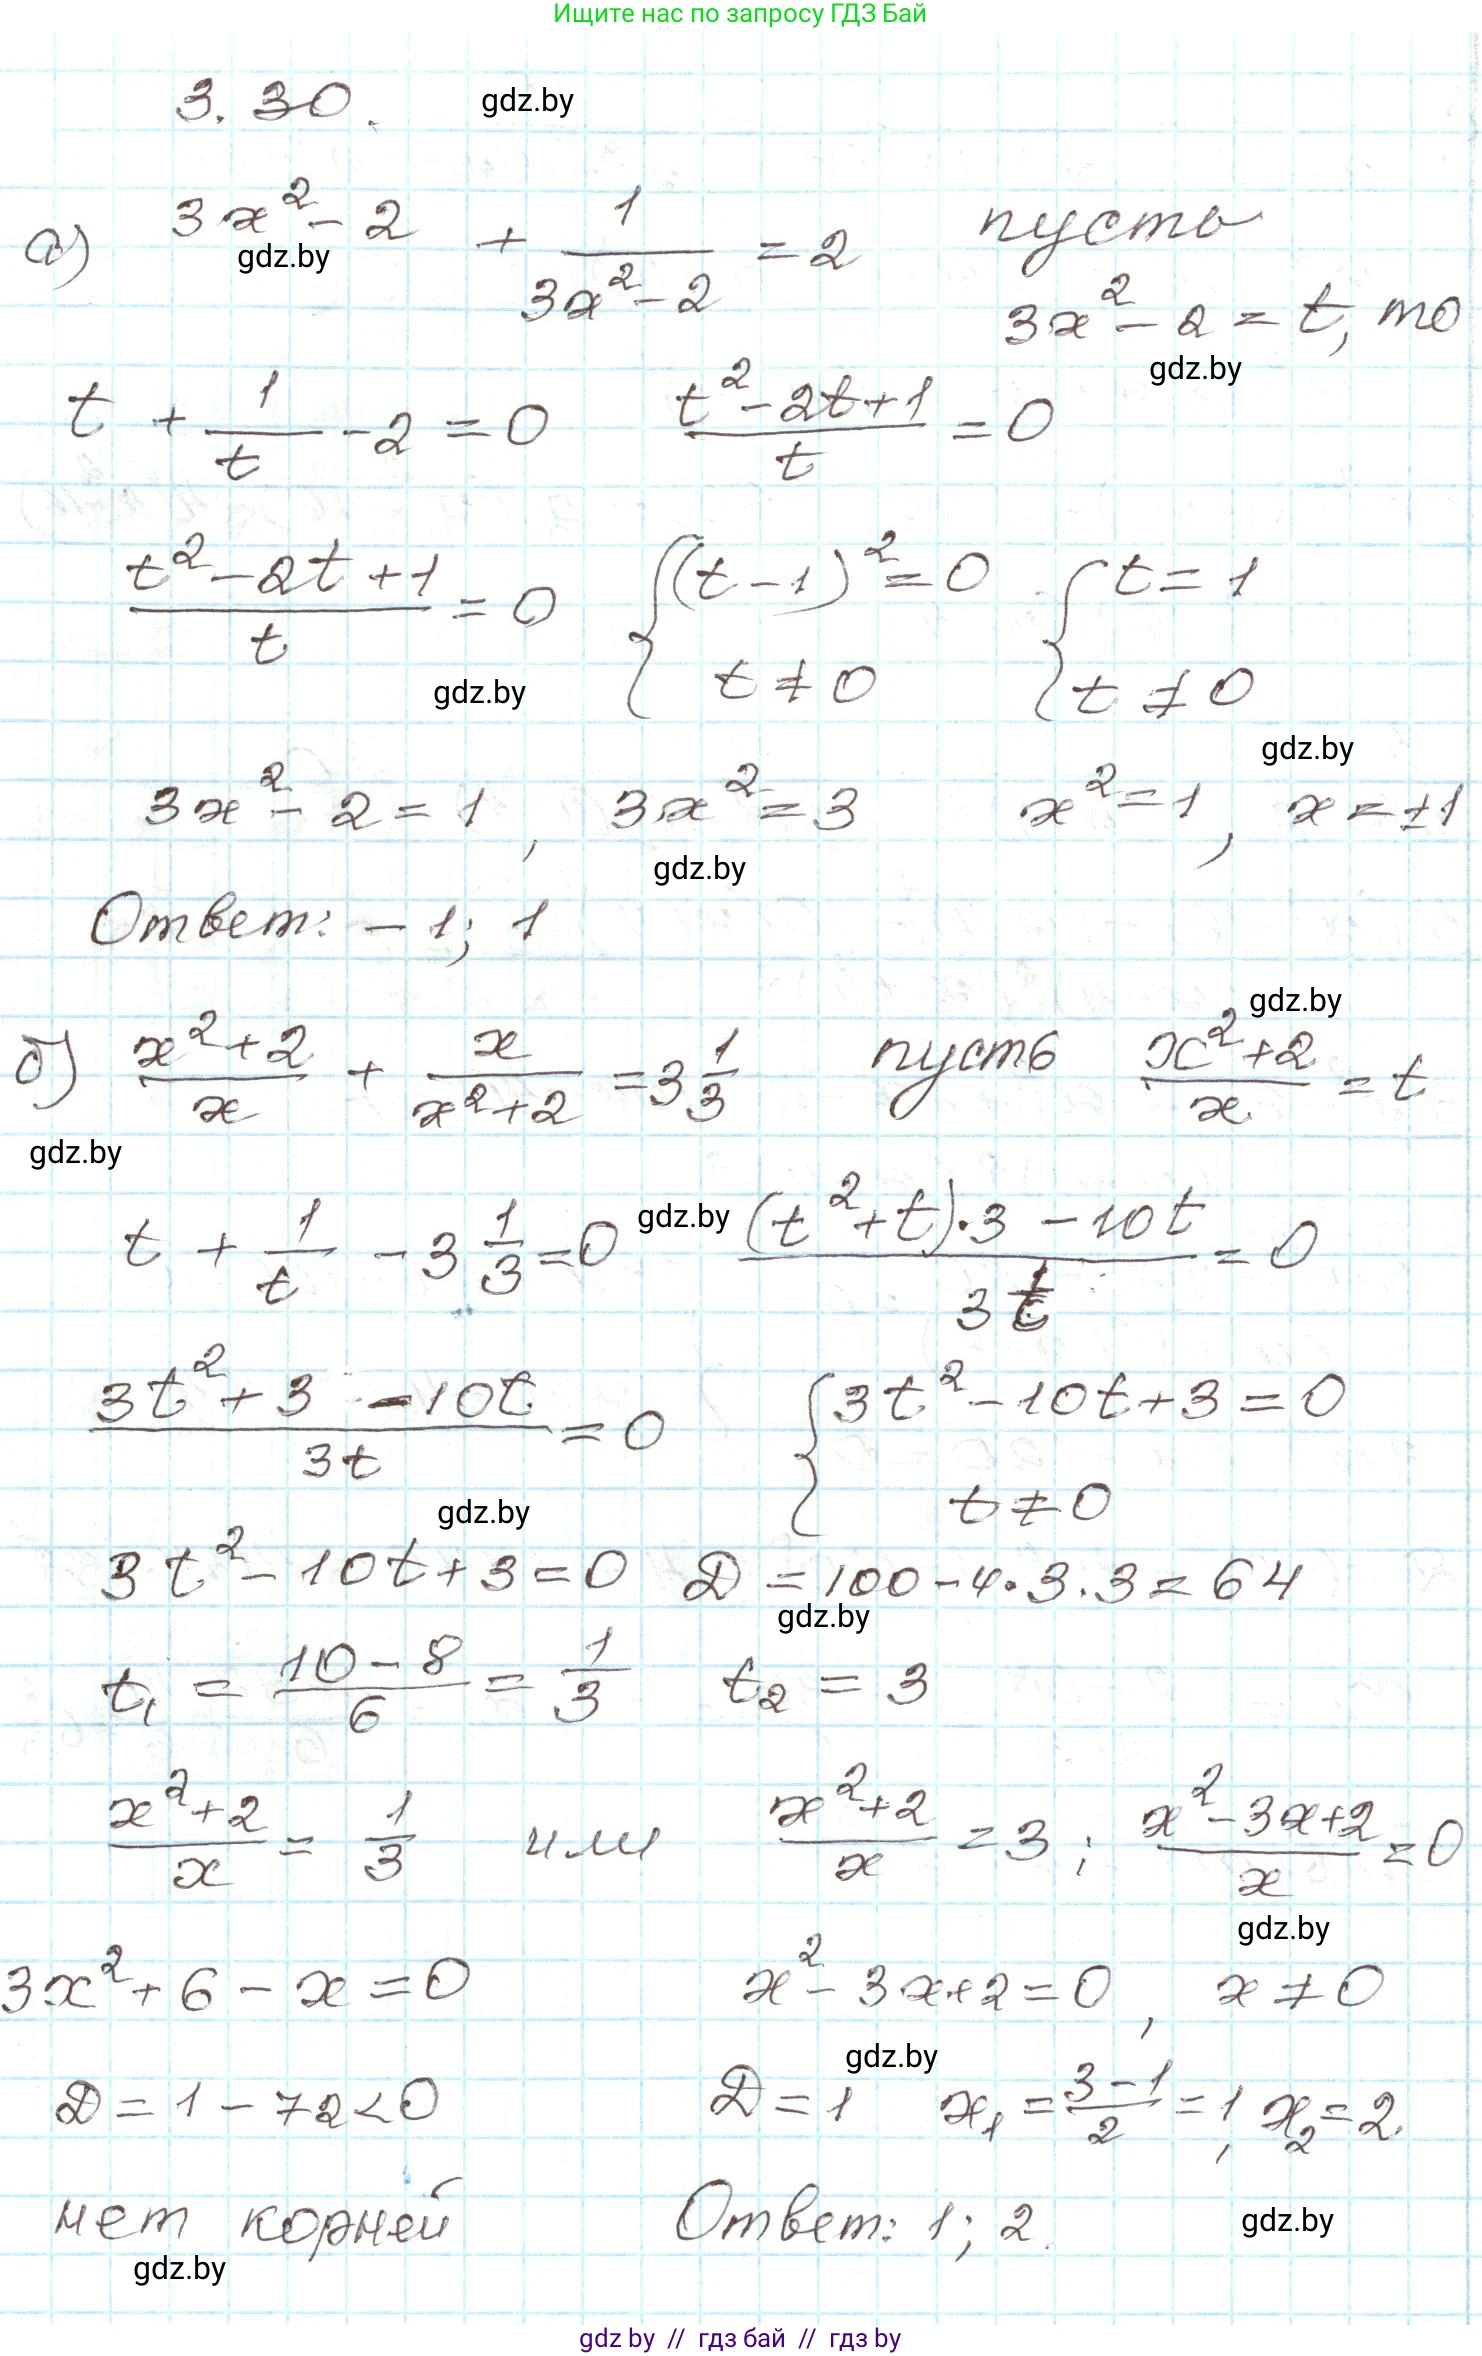 Ищите нас по запросу ГДЗ Бай
3.30. gdz.by
а) 3x² - 2 + 1/(3x² - 2) = 2 пусть
gdz.by
3x² - 2 = t, то
gdz.by
t + 1/t - 2 = 0 (t² - 2t + 1)/t = 0
(t² - 2t + 1)/t = 0 { (t - 1)² = 0 { t = 1
t ≠ 0 t ≠ 0
gdz.by
gdz.by
3x² - 2 = 1, 3x² = 3 x² = 1, x = ±1
gdz.by
Ответ: -1; 1
gdz.by
б) (x² + 2)/x + x/(x² + 2) = 3 1/3 пусть (x² + 2)/x = t
gdz.by
t + 1/t - 3 1/3 = 0 gdz.by ((t² + t)·3 - 10t)/(3t) = 0
(3t² + 3 - 10t)/(3t) = 0 { 3t² - 10t + 3 = 0
t ≠ 0
gdz.by
3t² - 10t + 3 = 0 D = 100 - 4·3·3 = 64
gdz.by
t₁ = (10 - 8)/6 = 1/3 t₂ = 3
(x² + 2)/x = 1/3 или (x² + 2)/x = 3; (x² - 3x + 2)/x = 0
gdz.by
3x² + 6 - x = 0 x² - 3x + 2 = 0, x ≠ 0
gdz.by
D = 1 - 72 < 0 D = 1 x₁ = (3 - 1)/2 = 1, x₂ = 2.
нет корней Ответ: 1; 2. gdz.by
gdz.by
gdz by // гдз бай // гдз by